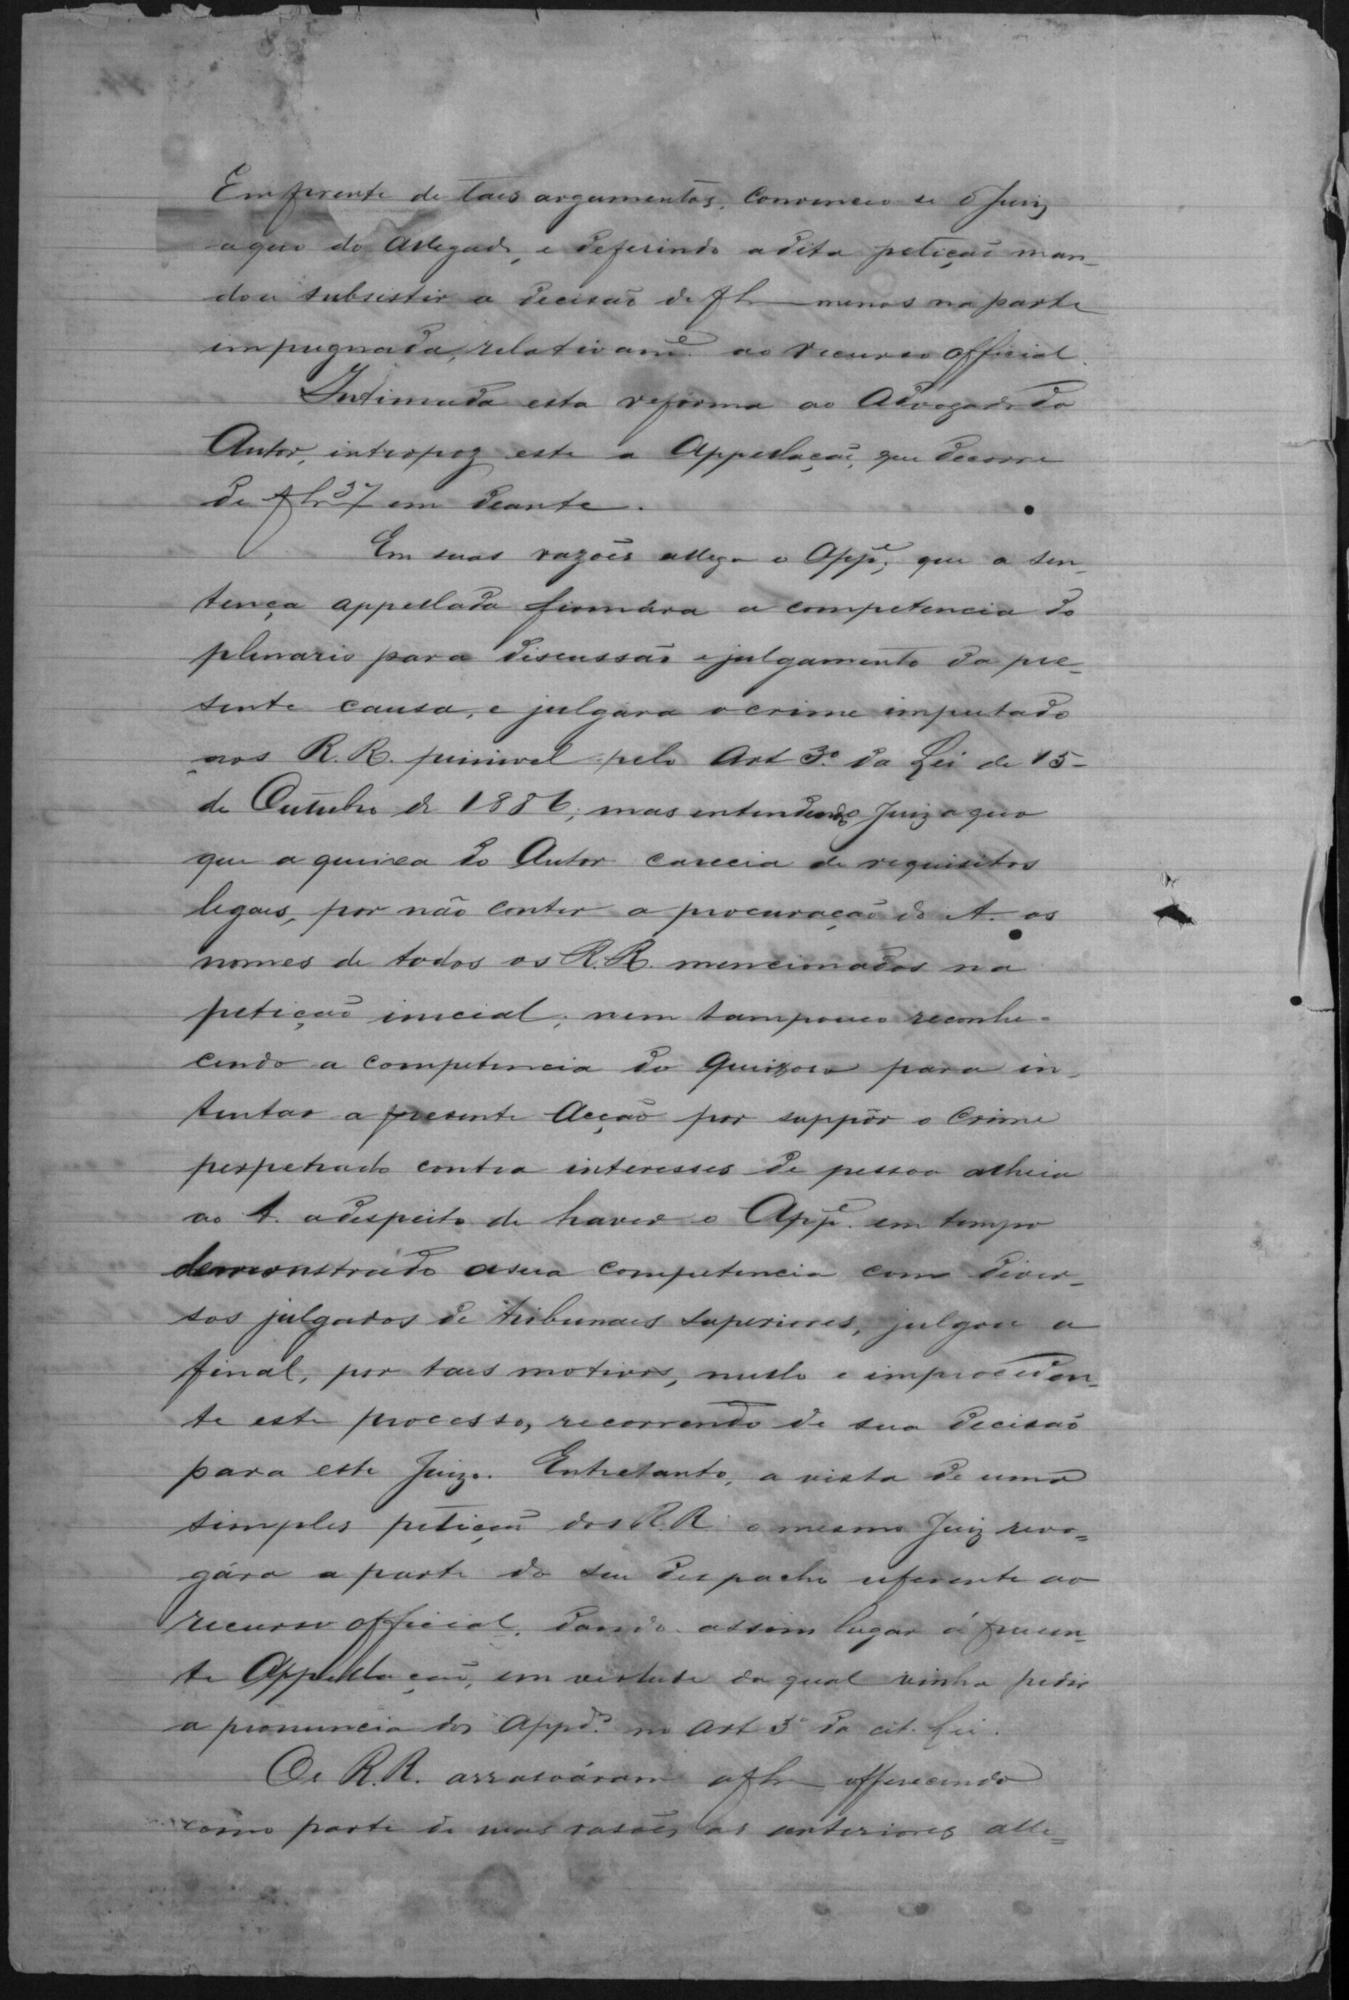 Em frente de taes argumentos, convenceo se o Juiz
a quo do allegado, e deferindo a dita petição man-
dou subsistir a decisão de fls menos na parte
impugnada, relativam.e ao recurso official.
Intimada esta reforma ao Advogado do
Autor, interpoz este a Appellação, que decorre
de fls 37 em deante.
Em suas razões allega o App.e, que a sen-
tença appellada firmára a competencia do
plenario para discussão e julgamento da pre-
sente causa, e julgara o crime imputado
aos R.R. punivel pelo Art 3.º da Lei de 15-
de Outubro de 1886; mas entendendo o Juiz a quo
que a queixa do Autor carecia de requisitos
legaes, por não conter a procuração do A. os
nomes de todos os R.R. mencionados na
petição inicial; nem tampouco reconhe-
cendo a competencia do queixoso para in-
tentar a presente Acção por suppôr o crime
perpetrado contra interesses de pessoa alheia
ao A. a despeito de haver o App.e em tempo
demonstrado a sua competencia com diver-
sos julgados de tribunaes superiores, julgou a
final, por taes motivos, nullo e improceden-
te este processo, recorrendo de sua decisão
para este Juizo. Entretanto, a vista de uma
simples petição dos R.R. o mesmo Juiz revo-
gára a parte do seu despacho referente ao
recurso official, dando assim lugar á presen-
te Appellação, em virtude da qual vinha pedir
a pronuncia dos App.dos no Art 3º da cit. Lei.
Os R.R. arrasoáram a fls offerecendo
como parte de suas rasões as anteriores alle-